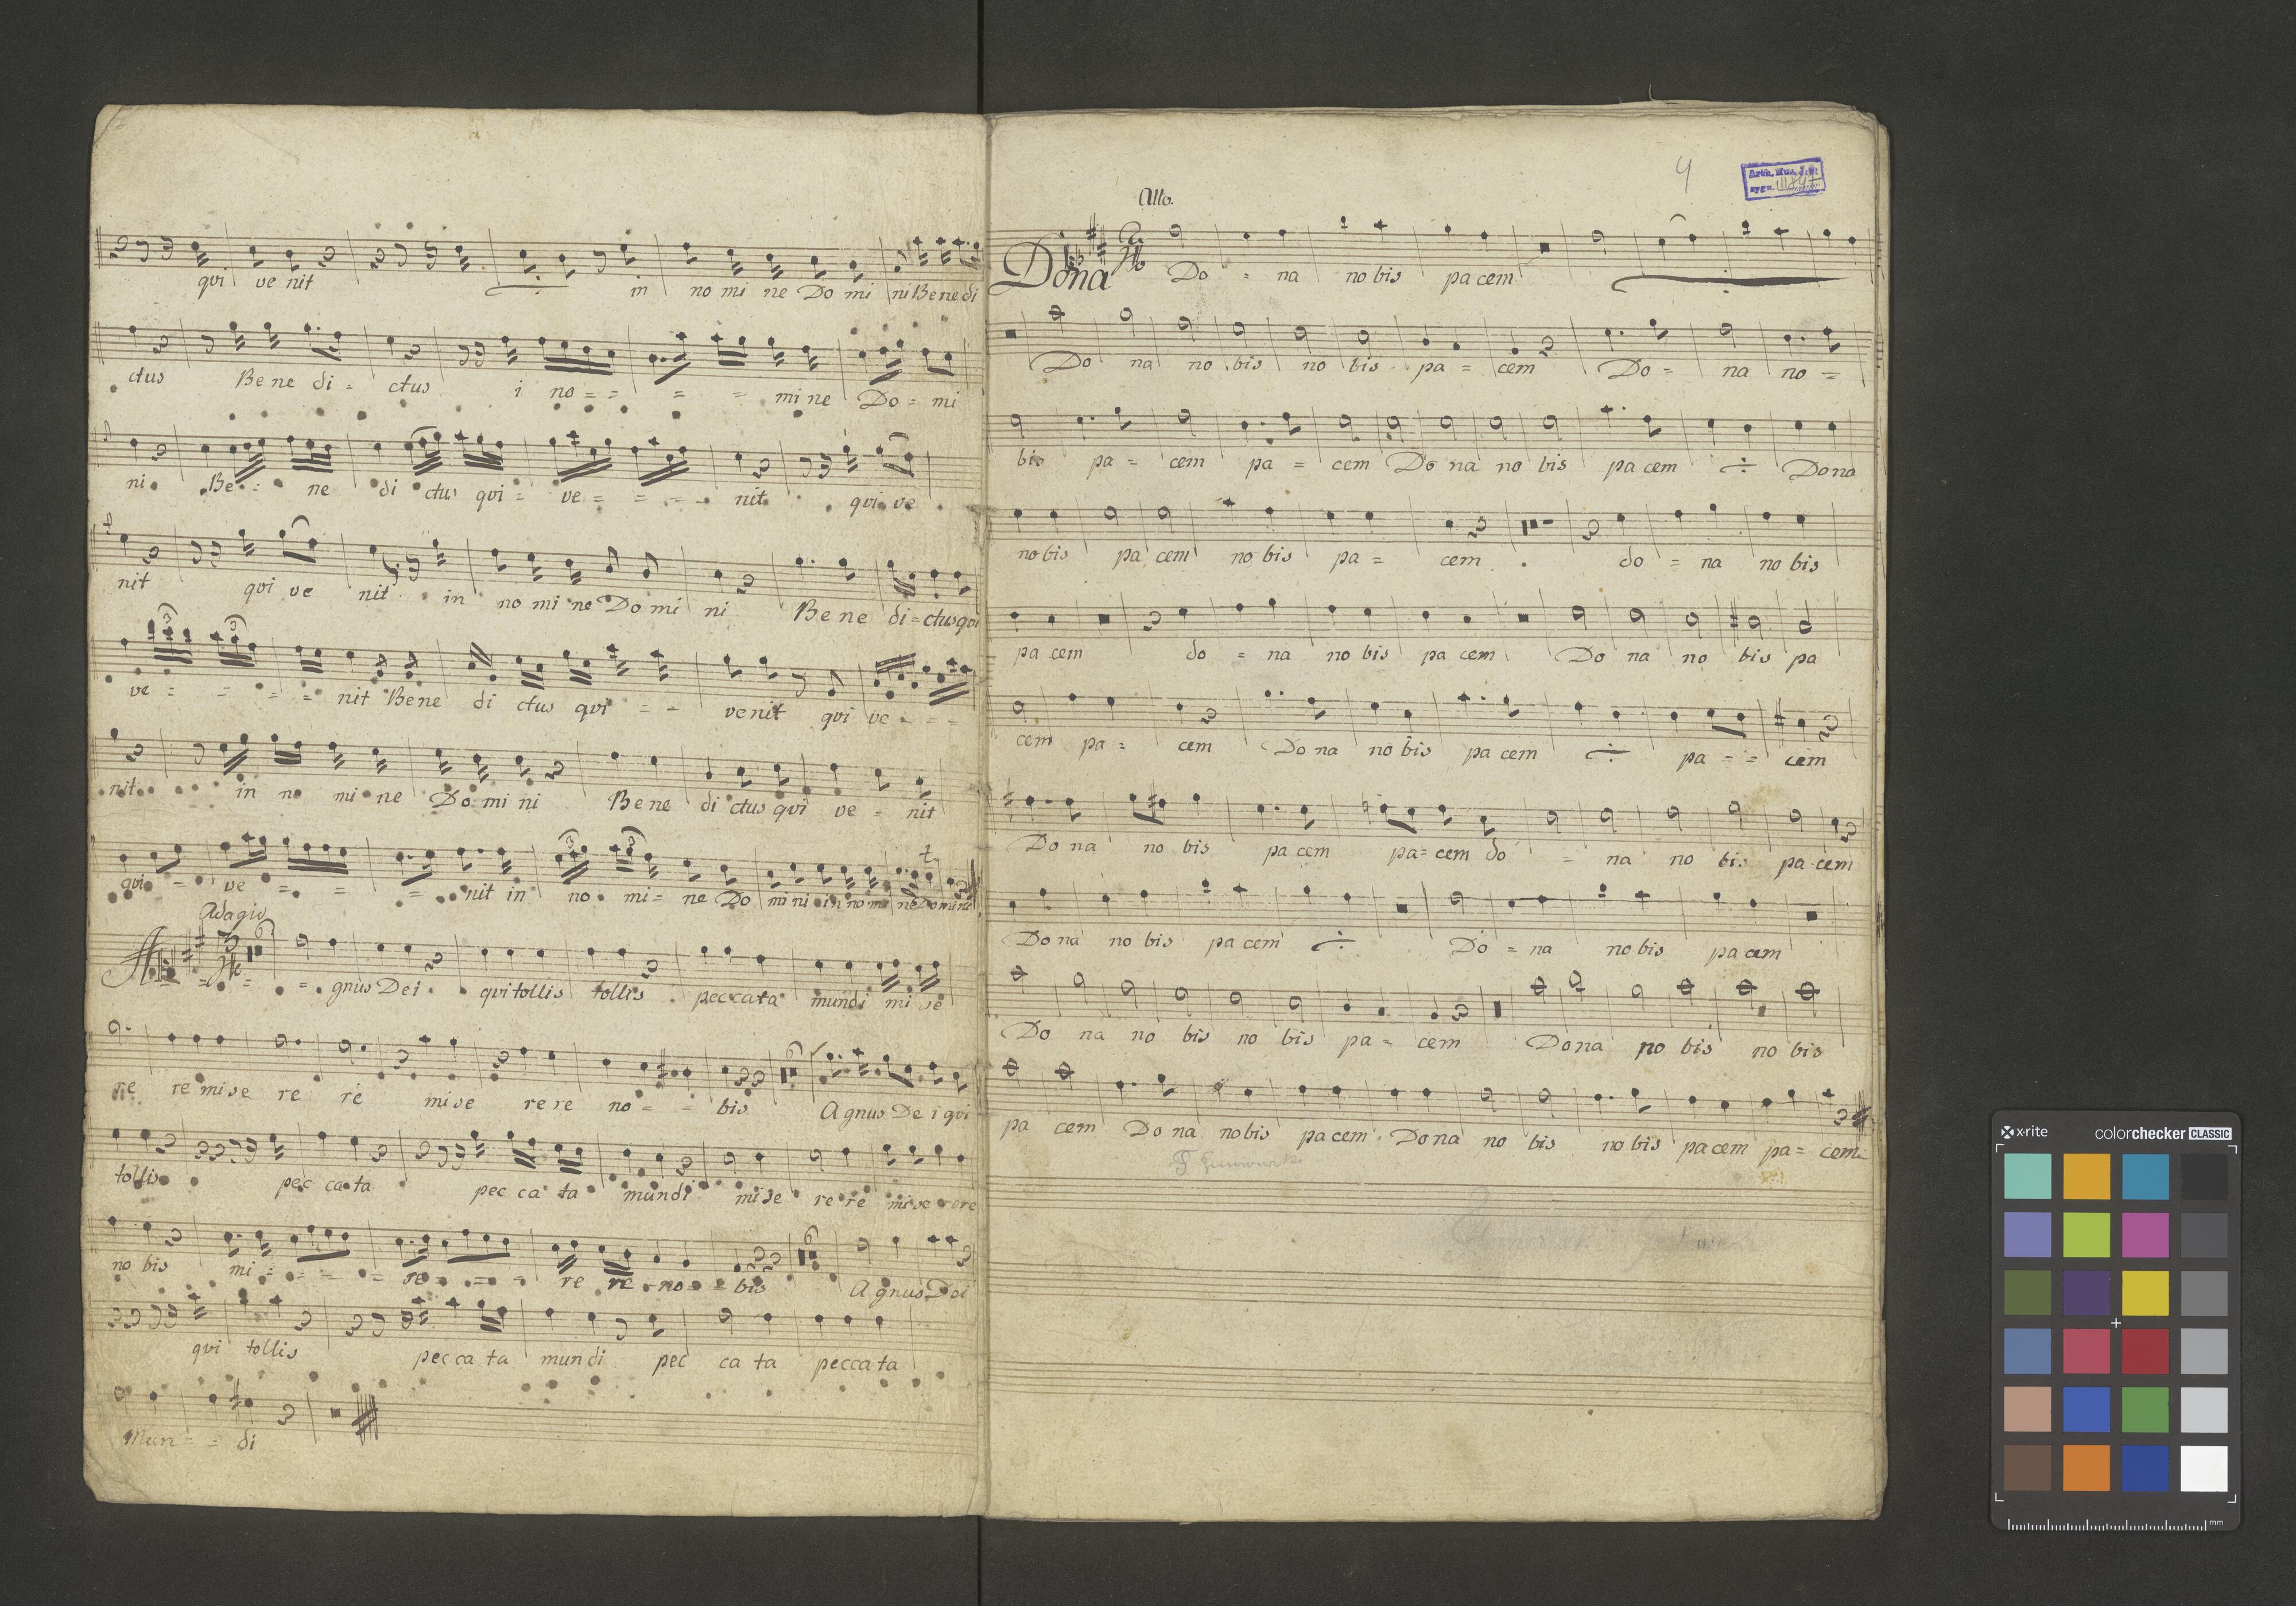 qui ve nit in no mi ne Do mi ni Bene di
ctus Be ne di = ctus i no = = = = mi ne Do = mi
ni Be = = ne di ctus qui = ve = = = = nit qui ve
nit qui ve nit in no mi ne Do mi ni Be ne di = ctus qui
ve = = = = nit Be ne di ctus qui = = ve nit qui ve = = =
nit in no mi ne Do mi ni Be ne di ctus qui ve = nit
qui = ve = = = nit in no mi = ne Do mi ni in no mi ne Domini
Adagio
A = = = gnus Dei qui tollis tollis peccata mundi mi se
re re mi se re re mi se re re no = = bis A gnus De i qui
tollis pec ca ta pec ca ta mundi mi se re re mi se rere
no bis mi = = = = re = = = re re no = = bis A gnus Dei
qui tollis pec ca ta mun di pec ca ta peccata
Mun = = di
4
Arch. Mus. J. G.
sygn.
Allo.
Dona Do = na no bis pa cem
Do na no bis no bis pa = cem Do = na no =
bis pa = cem pa = cem Do na no bis pa cem ÷ Do na
no bis pa cem no bis pa = cem do = na no bis
pa cem do = na no bis pa cem Do na no bis pa
cem pa = cem Do na no bis pa cem ÷ pa = = cem
Do na no bis pa cem pa = cem do = na no bis pa cem
Do na no bis pa cem ÷ Do = na no bis pa cem
Do na no bis no bis pa = cem Do na no bis no bis
pa cem Do na no bis pa cem Do na no bis no bis pa cem pa = cem
x-rite colorchecker CLASSIC
mm